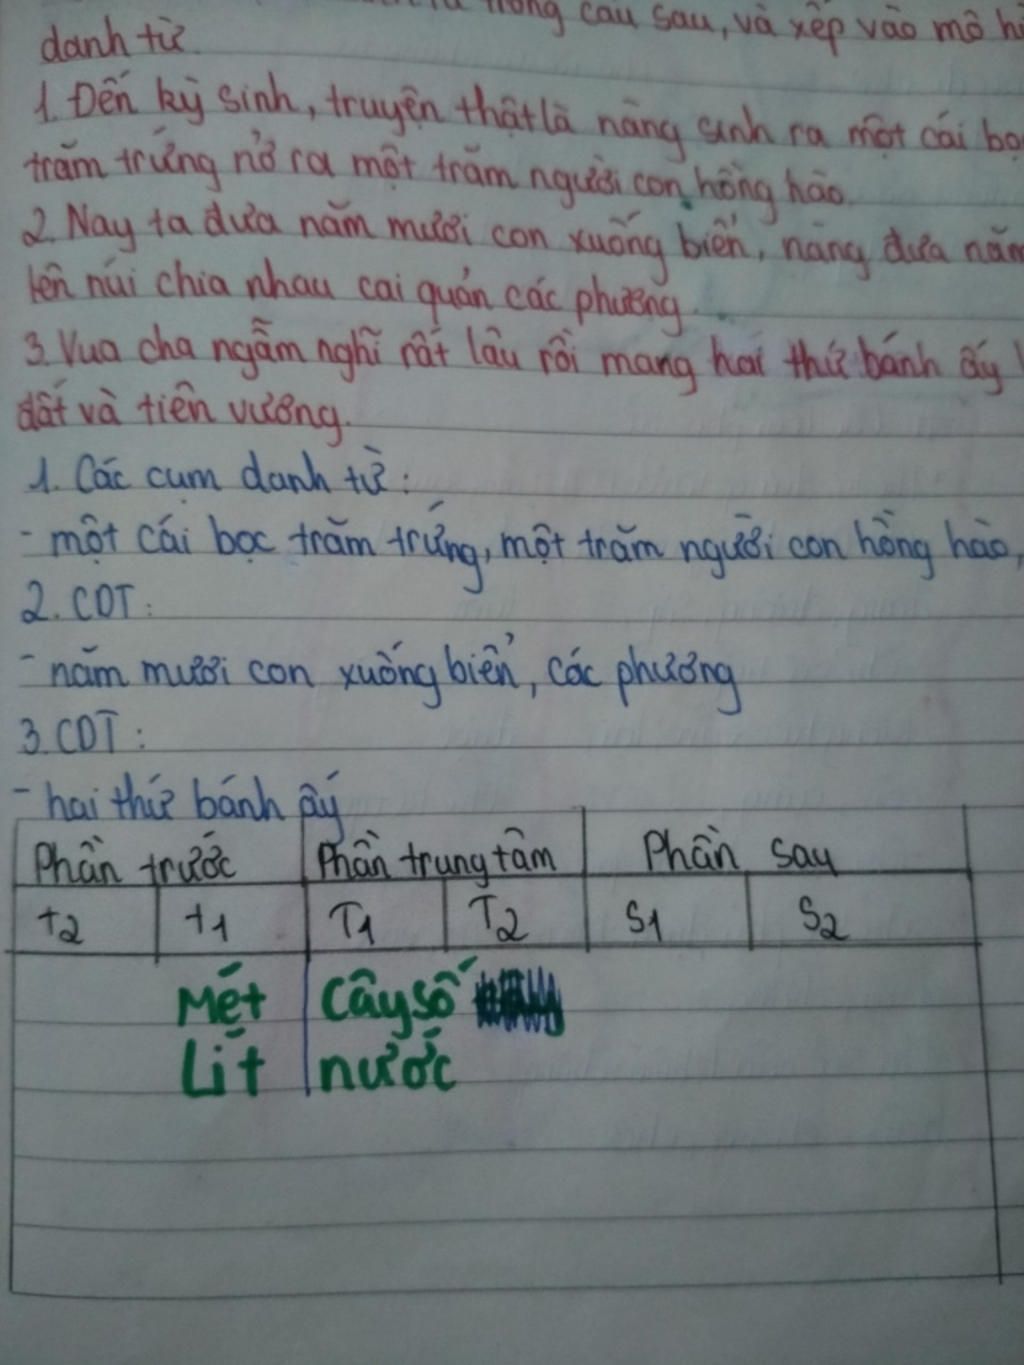 trong câu sau, và xếp vào mô
danh từ.
1. Đến kỳ sinh, truyện thật là nàng sinh ra một cái bọ
trăm trứng nở ra một trăm người con hồng hào.
2. Nay ta đưa năm mươi con xuống biển, nàng đưa năm
lên núi chia nhau cai quản các phương.
3. Vua cha ngẫm nghĩ rất lâu rồi mang hai thứ bánh ấy
đất và tiên vương.
1. Các cụm danh từ:
- một cái bọc trăm trứng, một trăm người con hồng hào,
2. CDT:
- năm mươi con xuống biển, các phương
3. CDT:
- hai thứ bánh ấy
Phần trước Phần trung tâm Phần sau
t2 t1 T1 T2 S1 S2
Mét Cây số
Lít nước